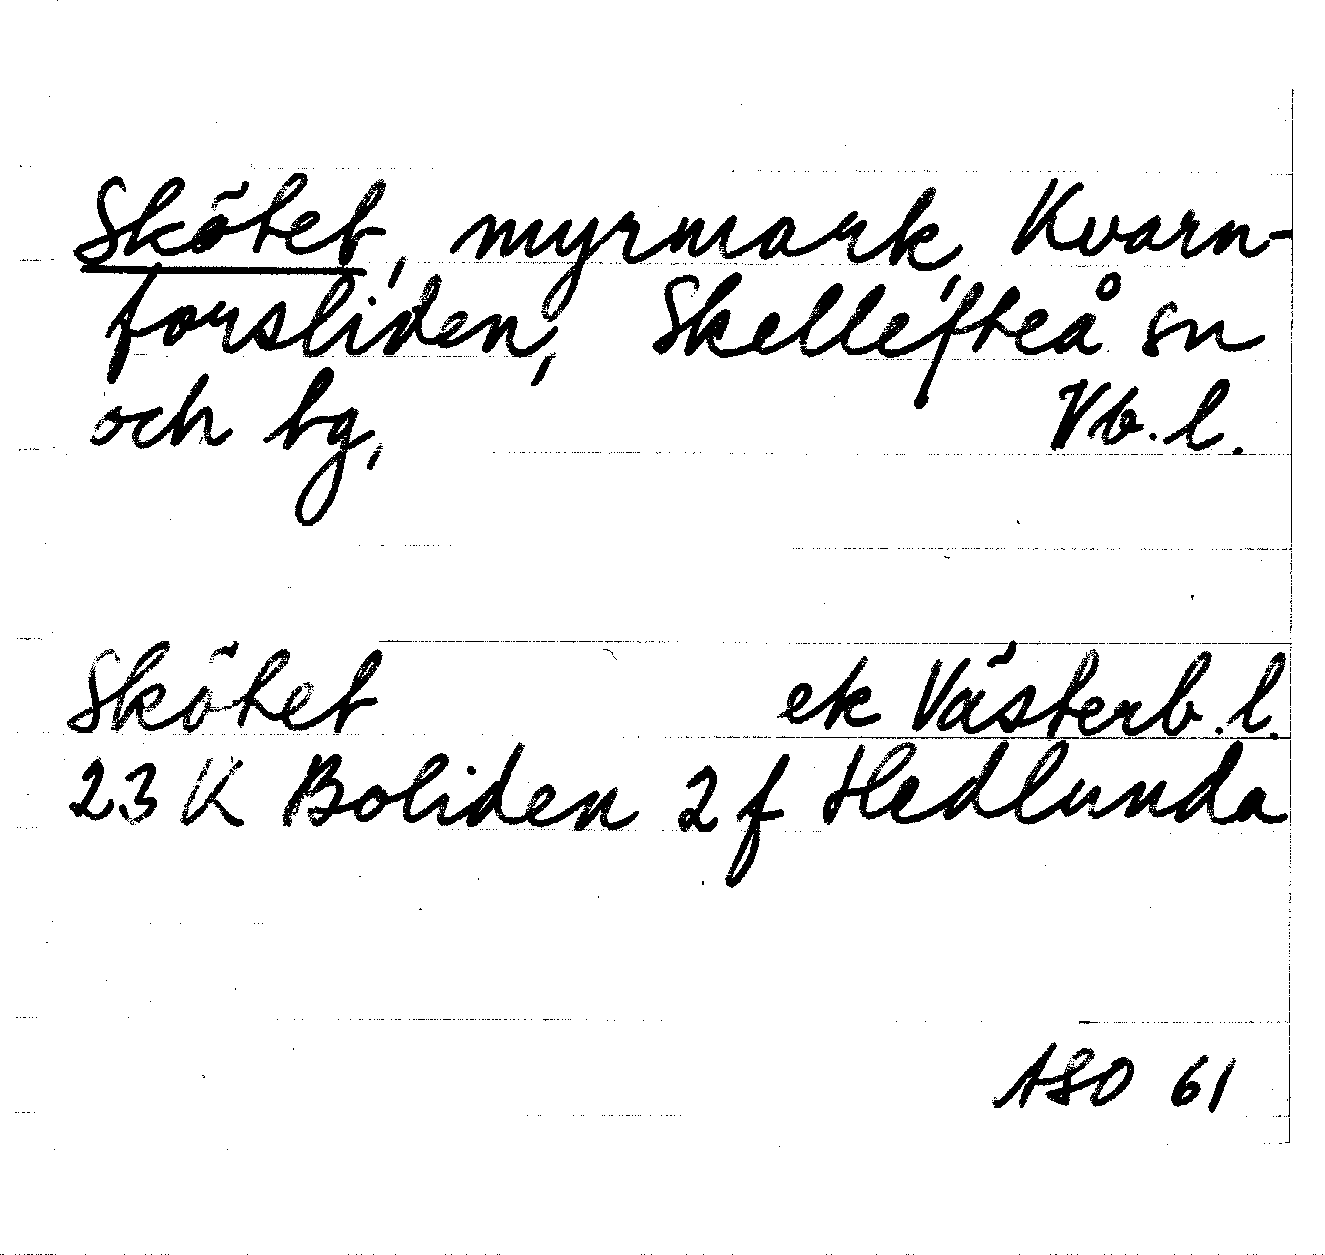 Skötet, myrmark, Kvarn-
forsliden, Skellefteå sn
och tg, Vb. l.
Skötet ek Västerb. l.
23 K Boliden 2 f Hedlunda
ASO 61